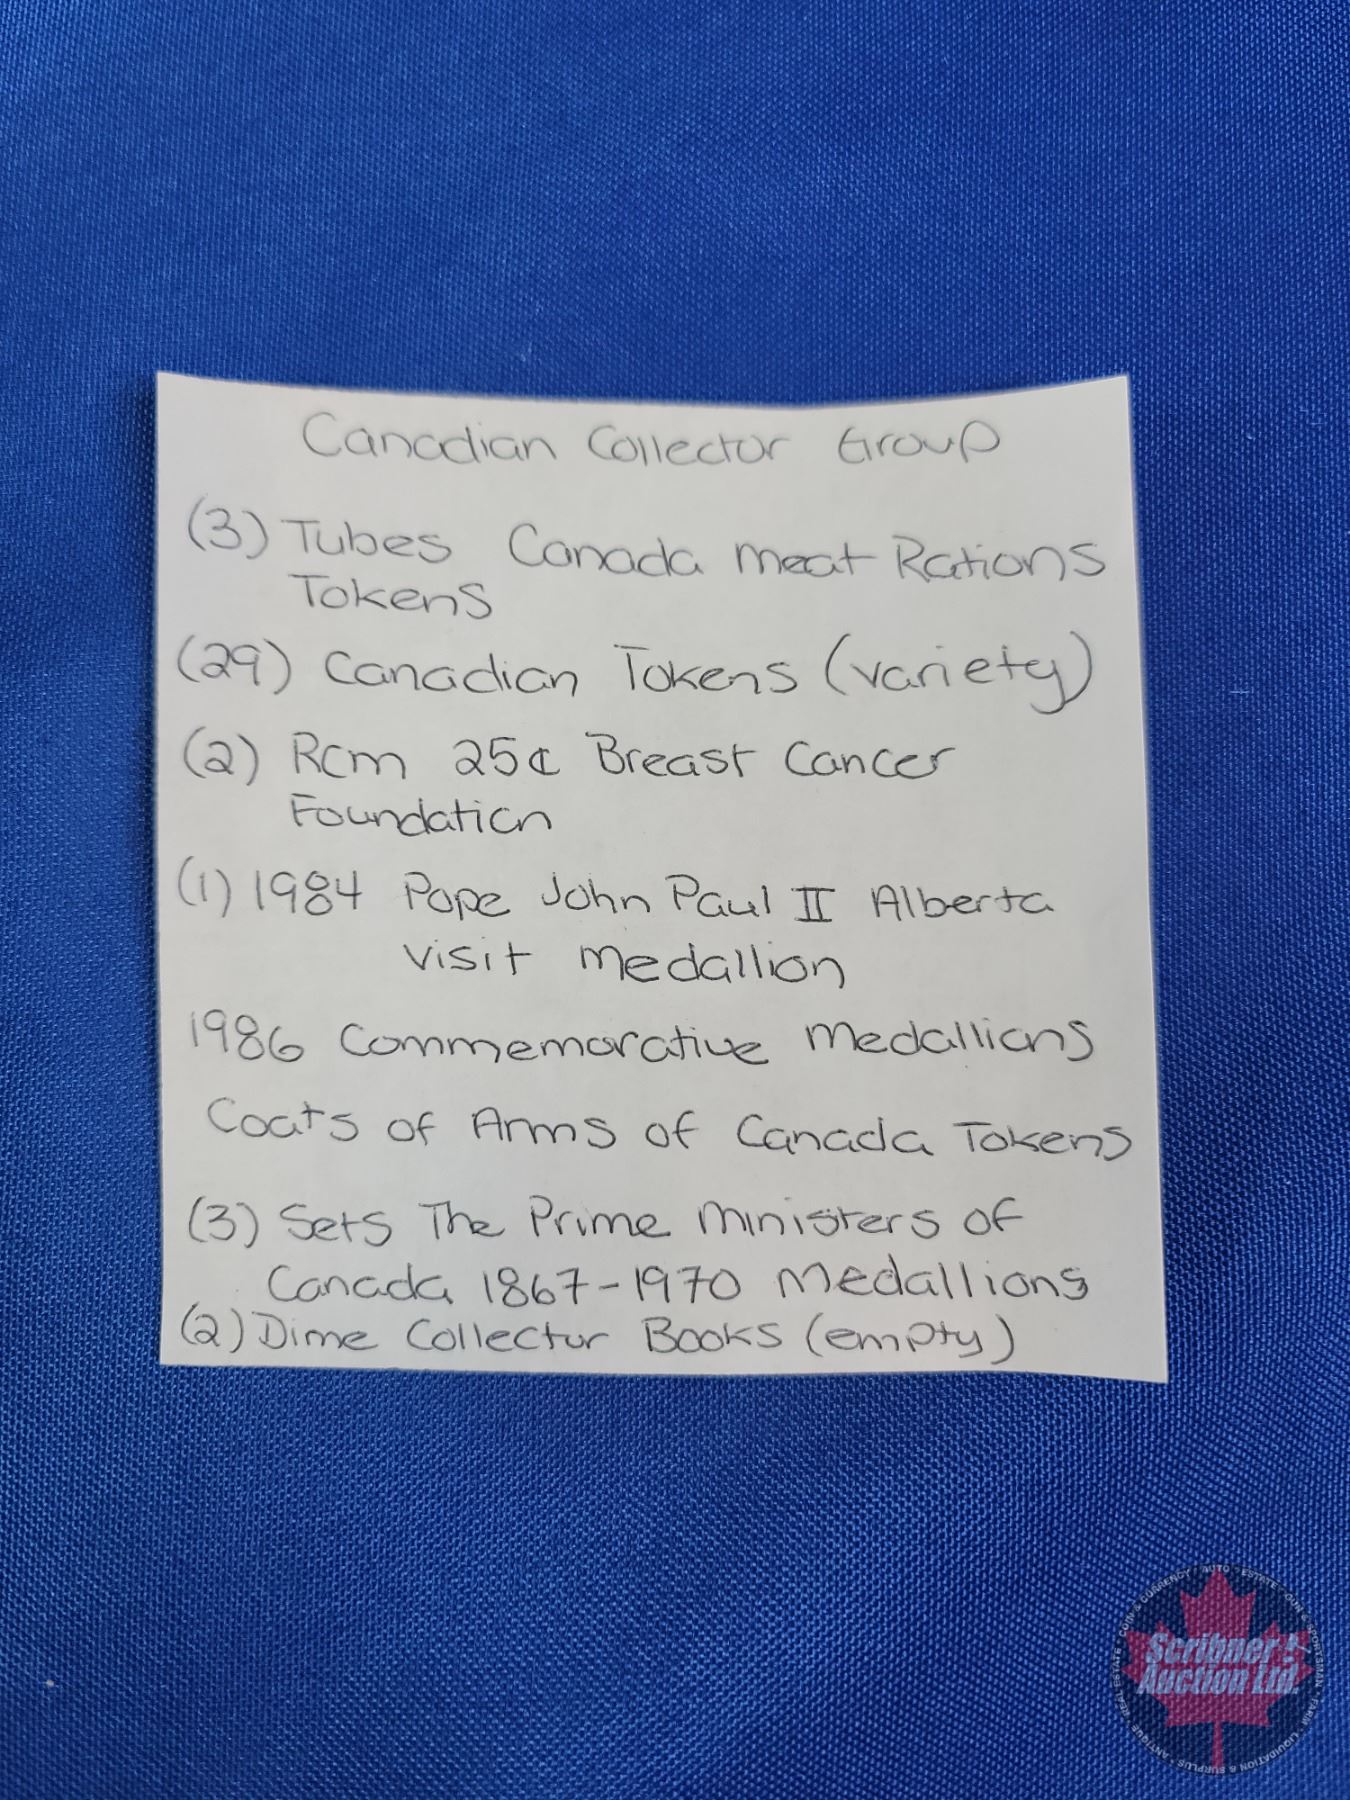 Canadian Collector Group
(3) Tubes Canada Meat Rations
Tokens
(29) Canadian Tokens (variety)
(2) Rcm 25¢ Breast Cancer
Foundation
(1) 1984 Pope John Paul II Alberta
Visit Medallion
1986 Commemorative Medallions
Coats of Arms of Canada Tokens
(3) Sets The Prime Ministers of
Canada 1867-1970 Medallions
(2) Dime Collector Books (empty)
COIN & CURRENCY • AUTO • ESTATE • GUN & SPORTSMAN • FARM • LIQUIDATION & SURPLUS • ANTIQUE • REAL ESTATE
Scribner
Auction Ltd.